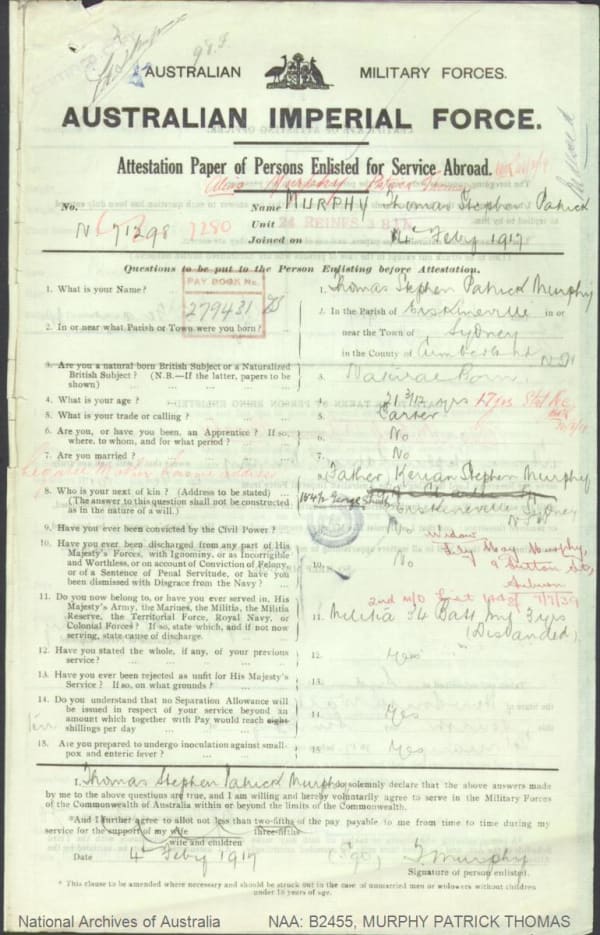 98.3.
AUSTRALIAN MILITARY FORCES.
AUSTRALIAN IMPERIAL FORCE.
Attestation Paper of Persons Enlisted for Service Abroad.
Alias Murphy Patrick Thomas
No. Name MURPHY Thomas Stephen Patrick
N 71298 7280 Unit 24 REINFS 3 BTN
Joined on 4th Feby 1917
Questions to be put to the Person Enlisting before Attestation.
PAY BOOK No.
279431
1. What is your Name? 1. Thomas Stephen Patrick Murphy
2. In or near what Parish or Town were you born? 2. In the Parish of Erskineville in or
near the Town of Sydney
in the County of Cumberland NSW
3. Are you a natural born British Subject or a Naturalized
British Subject? (N.B.—If the latter, papers to be
shown) 3. Natural Born
4. What is your age? 4. 21 3/12 yrs
5. What is your trade or calling? 5. Carter
6. Are you, or have you been, an Apprentice? If so,
where, to whom, and for what period? 6. No
7. Are you married? 7. No
8. Who is your next of kin? (Address to be stated)
(The answer to this question shall not be constructed
as in the nature of a will.) 8. Father Kerian Stephen Murphy
George Street Erskineville Sydney
NSW
9. Have you ever been convicted by the Civil Power? 9. No
Widow,
Lily May Murphy,
9 Sutton St,
Auburn
10. Have you ever been discharged from any part of His
Majesty's Forces, with Ignominy, or as Incorrigible
and Worthless, or on account of Conviction of Felony,
or of a Sentence of Penal Servitude, or have you
been dismissed with Disgrace from the Navy? 10. No
2nd M/D 7/7/39
11. Do you now belong to, or have you ever served in, His
Majesty's Army, the Marines, the Militia, the Militia
Reserve, the Territorial Force, Royal Navy, or
Colonial Forces? If so, state which, and if not now
serving, state cause of discharge. 11. Militia 34 Batt Inf 3 yrs
(Disbanded)
12. Have you stated the whole, if any, of your previous
service? 12. Yes
13. Have you ever been rejected as unfit for His Majesty's
Service? If so, on what grounds? 13.
14. Do you understand that no Separation Allowance will
be issued in respect of your service beyond an
amount which together with Pay would reach eight
shillings per day 14. Yes
15. Are you prepared to undergo inoculation against small-
pox and enteric fever? 15. Yes
I, Thomas Stephen Patrick Murphy do solemnly declare that the above answers made
by me to the above questions are true, and I am willing and hereby voluntarily agree to serve in the Military Forces
of the Commonwealth of Australia within or beyond the limits of the Commonwealth.
*And I further agree to allot not less than two-fifths of the pay payable to me from time to time during my
three-fifths
service for the support of my wife
wife and children
Date 4th Feby 1917 (Sgd) T Murphy
Signature of person enlisted.
* This clause to be amended where necessary and should be struck out in the case of unmarried men or widowers without children
under 18 years of age.
National Archives of Australia NAA: B2455, MURPHY PATRICK THOMAS